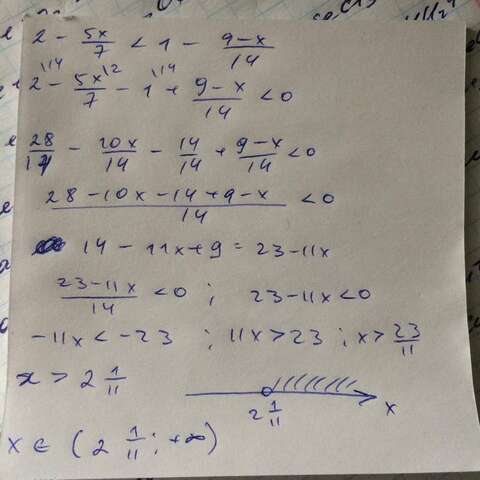 2 - 5x/7 < 1 - (9-x)/14
2\14 - 5x/7\2 - 1\14 + (9-x)/14 < 0
28/14 - 10x/14 - 14/14 + (9-x)/14 < 0
(28 - 10x - 14 + 9 - x)/14 < 0
14 - 11x + 9 = 23 - 11x
(23 - 11x)/14 < 0 ; 23 - 11x < 0
-11x < -23 ; 11x > 23 ; x > 23/11
x > 2 1/11
2 1/11 x
x ∈ (2 1/11 ; +∞)